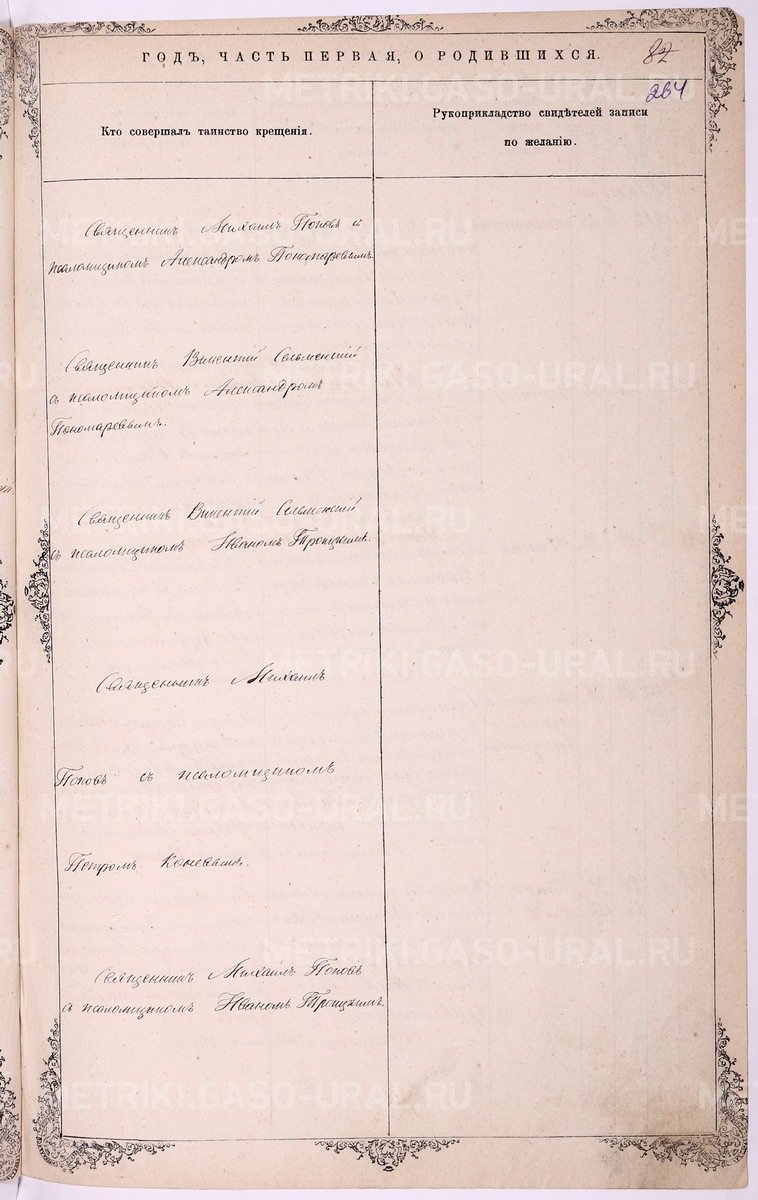 ГОДЪ, ЧАСТЬ ПЕРВАЯ, О РОДИВШИХСЯ.
82
264
Кто совершалъ таинство крещенія.
Рукоприкладство свидѣтелей записи
по желанію.
Священникъ Михаилъ Поповъ съ
псаломщикомъ Александромъ Пономаревымъ.
Священникъ Викентій Сельменскій
съ псаломщикомъ Александромъ
Пономаревымъ.
Священникъ Викентій Сельменскій
съ псаломщикомъ Иваномъ Троицкимъ.
Священникъ Михаилъ
Поповъ съ псаломщикомъ
Петромъ
Священникъ Михаилъ Поповъ
съ псаломщикомъ Иваномъ Троицкимъ.
METRIKI.GASO-URAL.RU